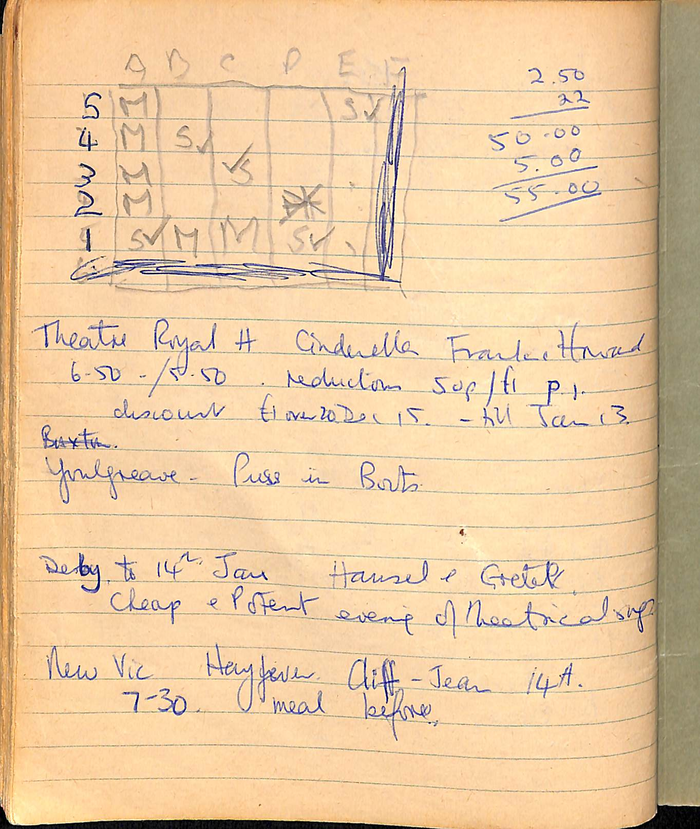 A B C D E F
2.50
5 M S✓
22
4 M S✓
50.00
3 M ✓S
5.00
2 M
55.00
1 S✓ M M S✓
Theatre Royal H Cinderella Frankie Howard
6-50 - / 5.50 . reductions 50p/£1 p.p.
discount £1 over 20 Dec 15. - till Jan 13.
Buxton.
Youlgreave - Puss in Boots.
Derby. to 14th Jan Hansel & Gretel.
Cheap & Potent evening of theatrical
New Vic Hayfever. Cliff - Jean 14th.
7-30. meal before.